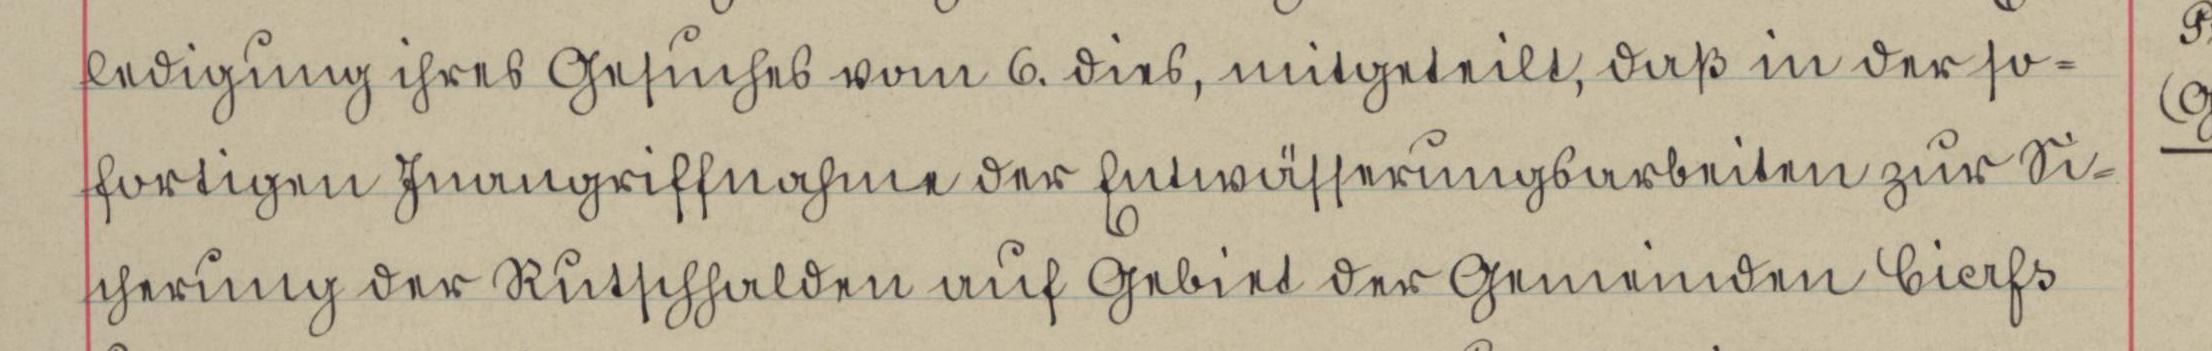 ledigung ihres Gesuches vom 6. dies, mitgeteilt, daß in der so-
fortigen Inangriffnahme der Entwässerungsarbeiten zur Si-
cherung der Rutschhalden auf Gebiet der Gemeinden Cierfs